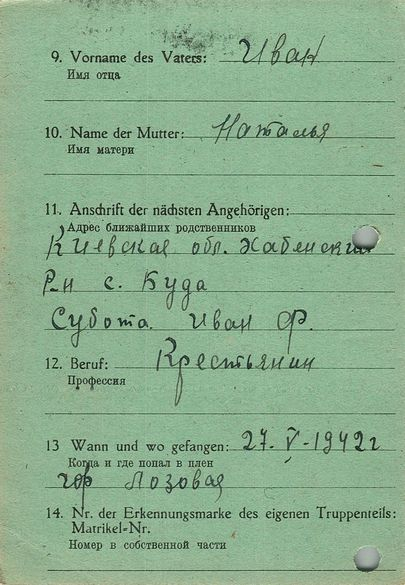 9. Vorname des Vaters: Иван
Имя отца
10. Name der Mutter: Наталья
Имя матери
11. Anschrift der nächsten Angehörigen:
Адрес ближайших родственников
Киевская обл. Хабенский
Р-н с. Буда
Субота. Иван Ф.
12. Beruf: Крестьянин
Профессия
13 Wann und wo gefangen: 27-V-1942г
Когда и где попал в плен
гор Лозовая
14. Nr. der Erkennungsmarke des eigenen Truppenteils:
Matrikel-Nr.
Номер в собственной части